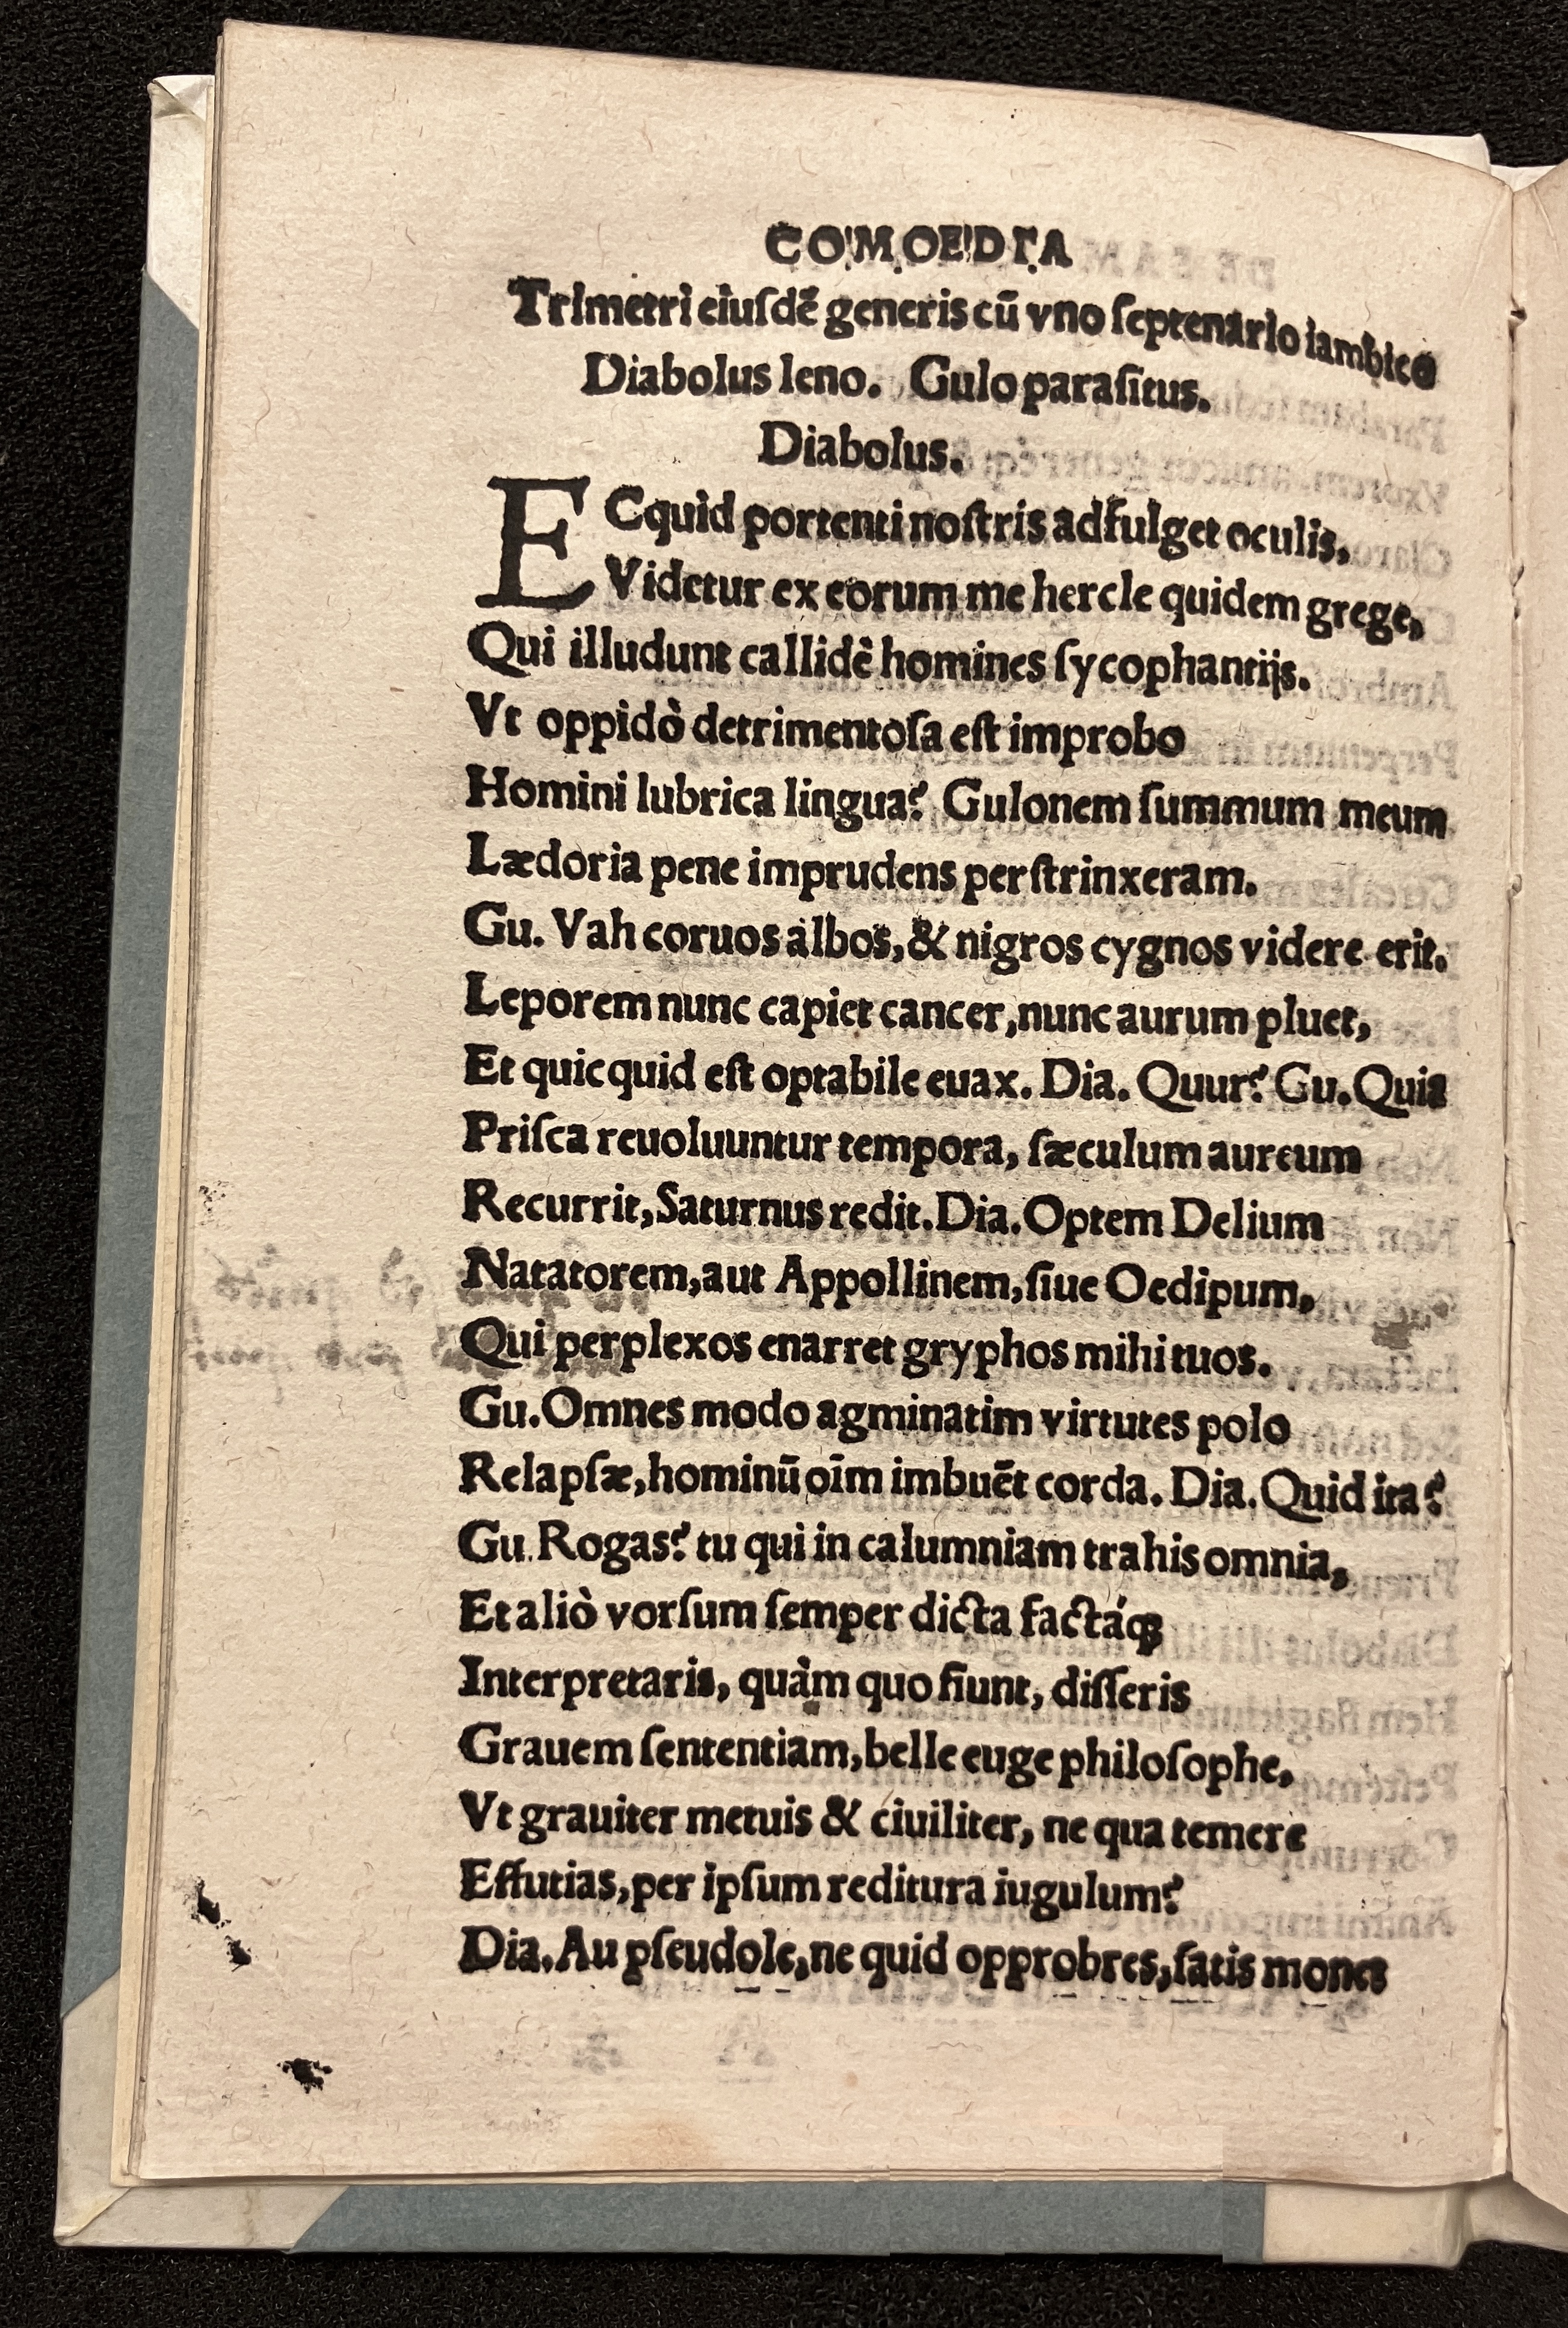 COMOEDIA
Trimetri eiuſdē generis cū vno ſeptenario iambico
Diabolus leno. Gulo paraſitus.
Diabolus.
ECquid portenti noſtris adfulget oculis,
Videtur ex eorum me hercle quidem grege,
Qui illudunt callidè homines ſycophantijs.
Vt oppidò detrimentoſa eſt improbo
Homini lubrica lingua? Gulonem ſummum meum
Lædoria pene imprudens perſtrinxeram.
Gu. Vah coruos albos, & nigros cygnos videre erit.
Leporem nunc capiet cancer, nunc aurum pluet,
Et quicquid eſt optabile euax. Dia. Quur? Gu. Quia
Priſca reuoluuntur tempora, ſæculum aureum
Recurrit, Saturnus redit. Dia. Optem Delium
Natatorem, aut Appollinem, ſiue Oedipum,
Qui perplexos enarret gryphos mihi tuos.
Gu. Omnes modo agminatim virtutes polo
Relapſæ, hominū oīm imbuēt corda. Dia. Quid ita?
Gu. Rogas? tu qui in calumniam trahis omnia,
Et aliò vorſum ſemper dicta factáqꝫ
Interpretaris, quàm quo fiunt, diſſeris
Grauem ſententiam, belle euge philoſophe,
Vt grauiter metuis & ciuiliter, ne qua temere
Effutias, per ipſum reditura iugulum?
Dia. Au pſeudole, ne quid opprobres, ſatis mones